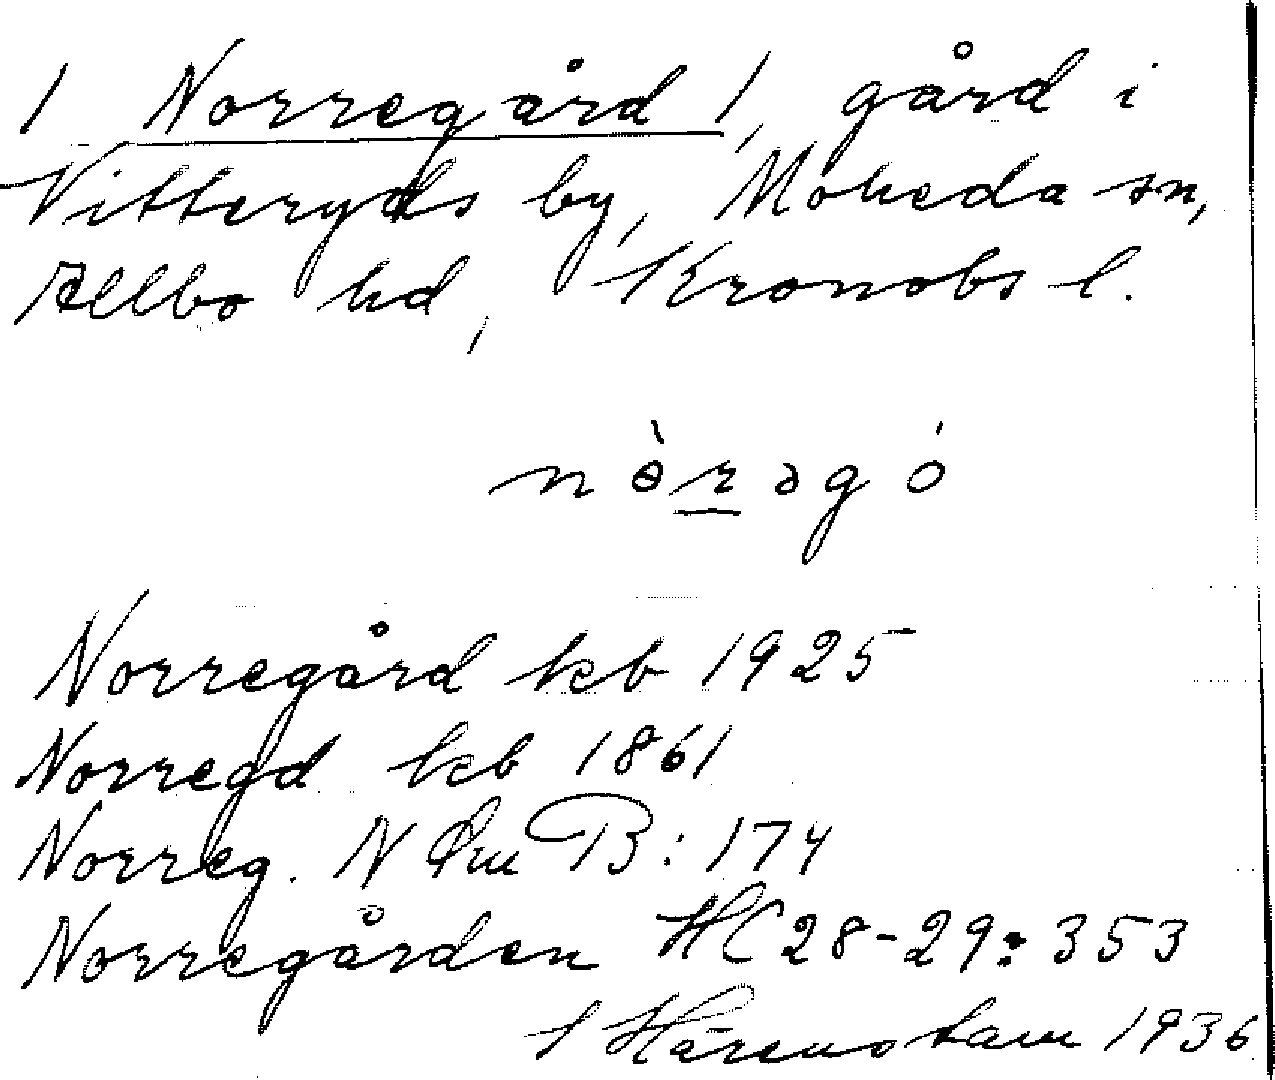 1 Norregård 1, gård i
Vitteryds by, Moheda sn,
Allbo hd, Kronobs l.
nɵ̀rəgó
Norregård kb 1925
Norregd kb 1861
Norreg. N Öm B: 174
Norregården HC 28-29: 353
S Härenstam 1936